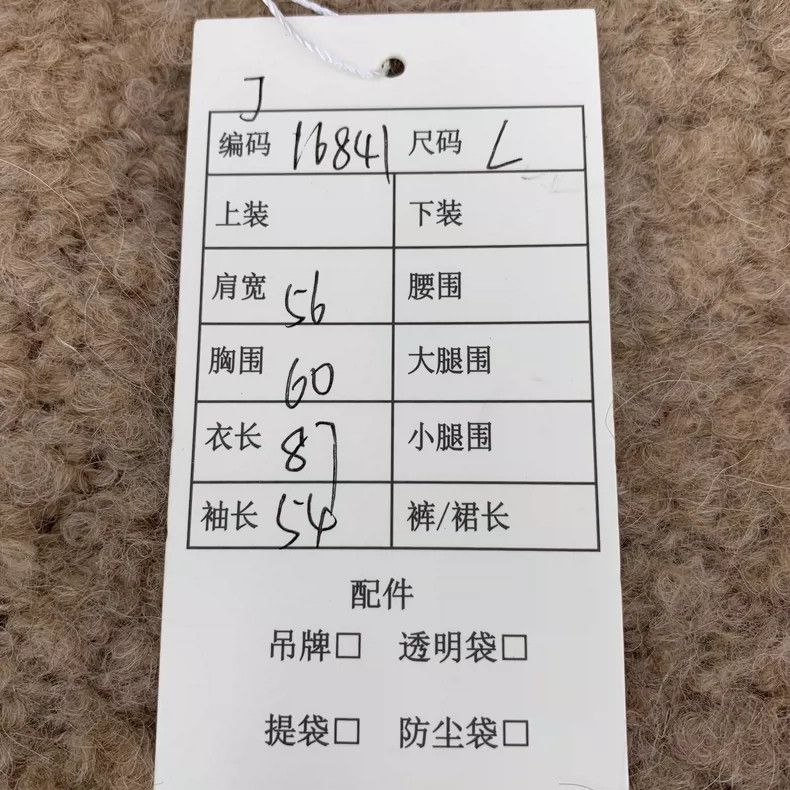 J
编码 16841 尺码 L
上装 下装
肩宽 56 腰围
胸围 60 大腿围
衣长 87 小腿围
袖长 54 裤/裙长
配件
吊牌□ 透明袋□
提袋□ 防尘袋□